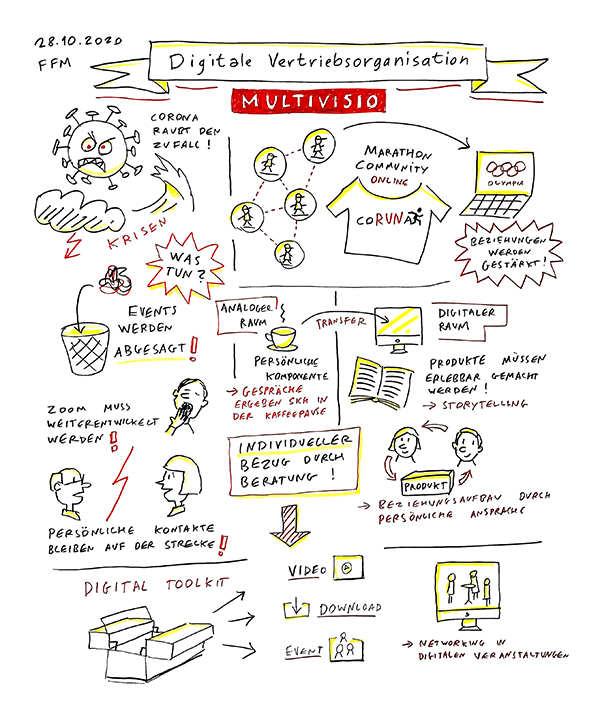 28.10.2020
FFM
Digitale Vertriebsorganisation
MULTIVISIO
CORONA
RAUBT DEN
ZUFALL!
KRISEN
WAS
TUN?
EVENTS
WERDEN
ABGESAGT!
ZOOM MUSS
WEITERENTWICKELT
WERDEN!
PERSÖNLICHE KONTAKTE
BLEIBEN AUF DER STRECKE!
MARATHON
COMMUNITY
ONLINE
CORUNA
OLYMPIA
BEZIEHUNGEN
WERDEN
GESTÄRKT!
ANALOGER
RAUM
TRANSFER
DIGITALER
RAUM
PERSÖNLICHE
KOMPONENTE
→ GESPRÄCHE
ERGEBEN SICH IN
DER KAFFEEPAUSE
PRODUKTE MÜSSEN
ERLEBBAR GEMACHT
WERDEN!
→ STORYTELLING
INDIVIDUELLER
BEZUG DURCH
BERATUNG!
PRODUKT
→ BEZIEHUNGSAUFBAU DURCH
PERSÖNLICHE ANSPRACHE
DIGITAL TOOLKIT
VIDEO
DOWNLOAD
EVENT
→ NETWORKING IN
DIGITALEN VERANSTALTUNGEN